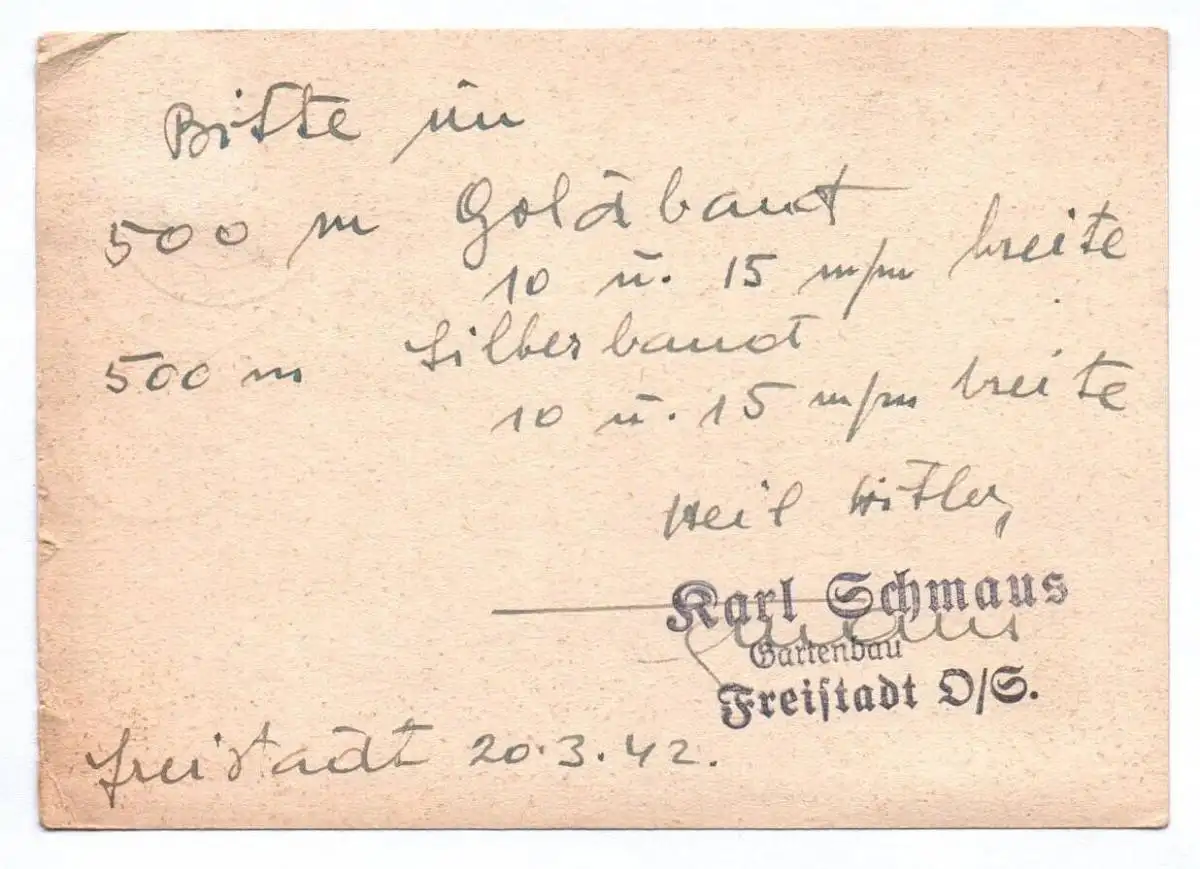 Bitte ün
500 m Goldbandt
10 u. 15 m/m breite
500 m Silberbandt
10 u. 15 m/m breite
Heil Hitler,
Karl Schmaus
Gartenbau
Freistadt O/S.
Freistadt 20.3.42.